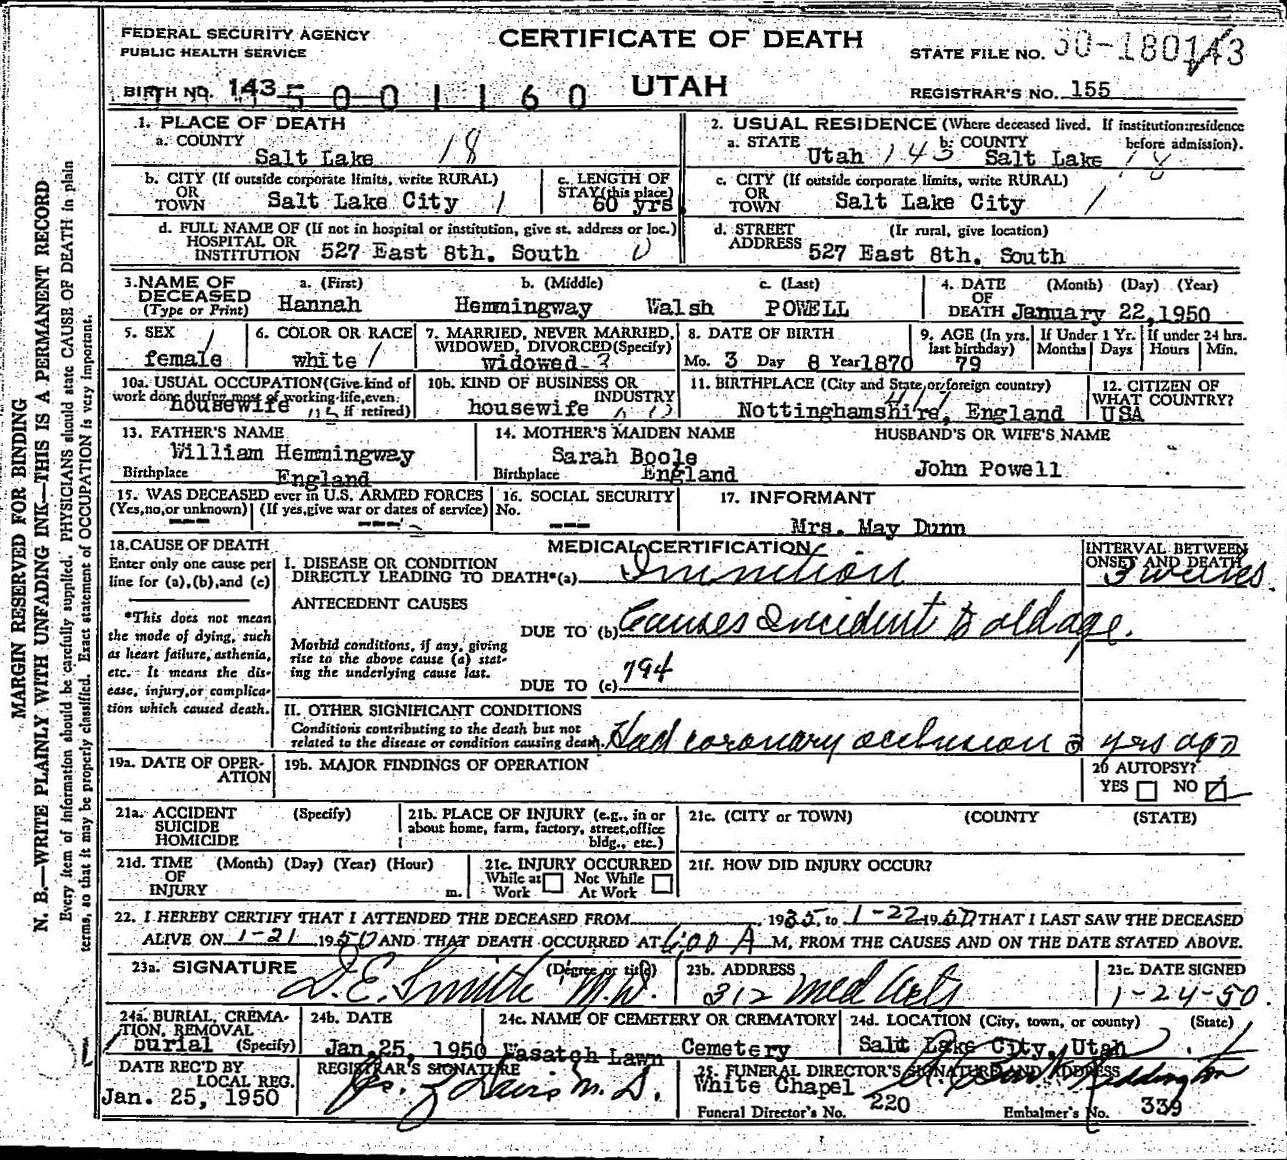 FEDERAL SECURITY AGENCY
PUBLIC HEALTH SERVICE
CERTIFICATE OF DEATH
STATE FILE NO.
BIRTH NO. 143 5 0 0 1 1 6 0
UTAH
REGISTRAR'S NO. 155
1. PLACE OF DEATH
a. COUNTY
Salt Lake 18
2. USUAL RESIDENCE (Where deceased lived. If institution:residence before admission).
a. STATE Utah 143 b. COUNTY Salt Lake 18
b. CITY (If outside corporate limits, write RURAL)
OR TOWN Salt Lake City 1
c. LENGTH OF STAY(this place)
60 yrs
c. CITY (If outside corporate limits, write RURAL)
OR TOWN Salt Lake City 1
d. FULL NAME OF (If not in hospital or institution, give st. address or loc.)
HOSPITAL OR INSTITUTION 527 East 8th. South 0
d. STREET ADDRESS (Ir rural, give location)
527 East 8th. South
3. NAME OF DECEASED (Type or Print)
a. (First) b. (Middle) c. (Last)
Hannah Hemmingway Walsh POWELL
4. DATE OF DEATH (Month) (Day) (Year)
January 22,1950
5. SEX
female 1
6. COLOR OR RACE
white 1
7. MARRIED, NEVER MARRIED, WIDOWED, DIVORCED(Specify)
widowed 3
8. DATE OF BIRTH
Mo. 3 Day 8 Year 1870
9. AGE (In yrs. last birthday)
79
If Under 1 Yr. Months Days
If under 24 hrs. Hours Min.
10a. USUAL OCCUPATION(Give kind of work done during most of working life,even if retired)
housewife
10b. KIND OF BUSINESS OR INDUSTRY
housewife
11. BIRTHPLACE (City and State,or foreign country)
Nottinghamshire, England
12. CITIZEN OF WHAT COUNTRY?
USA
13. FATHER'S NAME
William Hemmingway
Birthplace England
14. MOTHER'S MAIDEN NAME
Sarah Boole
Birthplace England
HUSBAND'S OR WIFE'S NAME
John Powell
15. WAS DECEASED ever in U.S. ARMED FORCES
(Yes,no,or unknown) (If yes,give war or dates of service)
--- ---
16. SOCIAL SECURITY
No.
---
17. INFORMANT
Mrs. May Dunn
18.CAUSE OF DEATH
Enter only one cause per line for (a),(b),and (c)
*This does not mean the mode of dying, such as heart failure, asthenia, etc. It means the disease, injury,or complication which caused death.
MEDICAL CERTIFICATION
I. DISEASE OR CONDITION
DIRECTLY LEADING TO DEATH*(a) Inanition
INTERVAL BETWEEN ONSET AND DEATH
3 weeks
ANTECEDENT CAUSES
DUE TO (b) Causes Incident to old age.
Morbid conditions, if any, giving rise to the above cause (a) stating the underlying cause last.
DUE TO (c) 794
II. OTHER SIGNIFICANT CONDITIONS
Conditions contributing to the death but not related to the disease or condition causing death. Had coronary occlusion 3 yrs ago
19a. DATE OF OPERATION
19b. MAJOR FINDINGS OF OPERATION
20 AUTOPSY?
YES NO
21a. ACCIDENT SUICIDE HOMICIDE (Specify)
21b. PLACE OF INJURY (e.g., in or about home, farm, factory, street,office bldg., etc.)
21c. (CITY or TOWN) (COUNTY (STATE)
21d. TIME OF INJURY (Month) (Day) (Year) (Hour) m.
21e. INJURY OCCURRED
While at Work Not While At Work
21f. HOW DID INJURY OCCUR?
22. I HEREBY CERTIFY THAT I ATTENDED THE DECEASED FROM 1935, to 1-22 1950 THAT I LAST SAW THE DECEASED
ALIVE ON 1-21 1950 AND THAT DEATH OCCURRED AT 6:00 A M, FROM THE CAUSES AND ON THE DATE STATED ABOVE.
23a. SIGNATURE (Degree or title)
D.E. Smith M.D.
23b. ADDRESS
312 Med Arts
23c. DATE SIGNED
1-24-50.
24a. BURIAL, CREMATION, REMOVAL (Specify)
Burial
24b. DATE
Jan. 25, 1950
24c. NAME OF CEMETERY OR CREMATORY
Wasatch Lawn Cemetery
24d. LOCATION (City, town, or county) (State)
Salt Lake City, Utah
DATE REC'D BY LOCAL REG.
Jan. 25, 1950
REGISTRAR'S SIGNATURE
25. FUNERAL DIRECTOR'S SIGNATURE AND ADDRESS
White Chapel
Funeral Director's No. 220
Embalmer's No. 339
MARGIN RESERVED FOR BINDING
N. B.—WRITE PLAINLY WITH UNFADING INK—THIS IS A PERMANENT RECORD
Every item of information should be carefully supplied. PHYSICIANS should state CAUSE OF DEATH in plain
terms, so that it may be properly classified. Exact statement of OCCUPATION is very important.